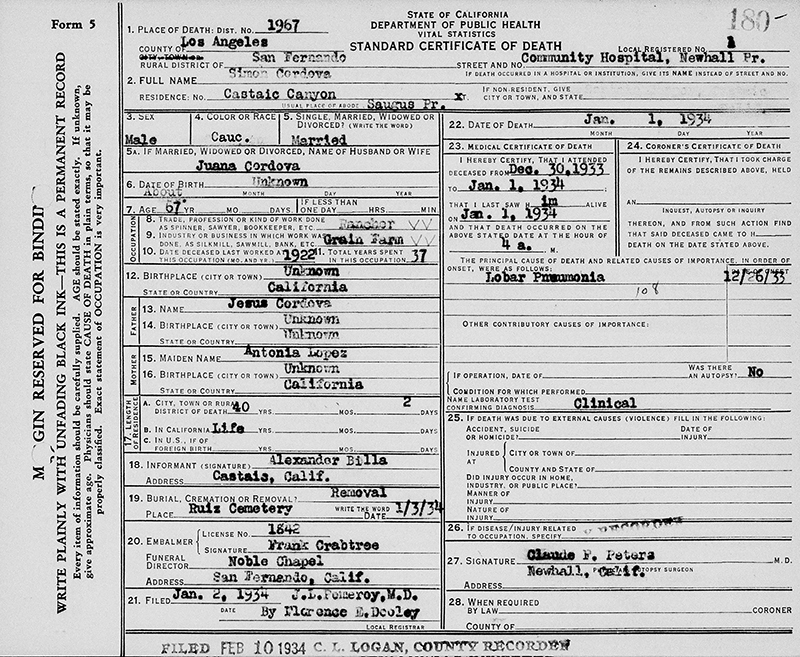 Form 5
180-
STATE OF CALIFORNIA
DEPARTMENT OF PUBLIC HEALTH
VITAL STATISTICS
STANDARD CERTIFICATE OF DEATH
1. PLACE OF DEATH: DIST. NO. 1967
COUNTY OF Los Angeles
LOCAL REGISTERED NO. 1
CITY TOWN OR
RURAL DISTRICT OF San Fernando STREET AND NO. Community Hospital, Newhall Pr.
IF DEATH OCCURRED IN A HOSPITAL OR INSTITUTION, GIVE ITS NAME INSTEAD OF STREET AND NO.
2. FULL NAME Simon Cordova
RESIDENCE: NO. Castaic Canyon ST. IF NON-RESIDENT, GIVE CITY OR TOWN, AND STATE
USUAL PLACE OF ABODE Saugus Pr.
3. SEX Male
4. COLOR OR RACE Cauc.
5. SINGLE, MARRIED, WIDOWED OR DIVORCED? (WRITE THE WORD) Married
5A. IF MARRIED, WIDOWED OR DIVORCED, NAME OF HUSBAND OR WIFE
Juana Cordova
6. DATE OF BIRTH Unknown
MONTH DAY YEAR
About
7. AGE 67 YR. MO. DAYS IF LESS THAN ONE DAY HRS. MIN
OCCUPATION
8. TRADE, PROFESSION OR KIND OF WORK DONE AS SPINNER, SAWYER, BOOKKEEPER, ETC. Rancher
9. INDUSTRY OR BUSINESS IN WHICH WORK WAS DONE, AS SILKMILL, SAWMILL, BANK, ETC. Grain Farm
10. DATE DECEASED LAST WORKED AT THIS OCCUPATION (MO. AND YR.) 1922 11. TOTAL YEARS SPENT IN THIS OCCUPATION 37
12. BIRTHPLACE (CITY OR TOWN) Unknown
STATE OR COUNTRY California
FATHER
13. NAME Jesus Cordova
14. BIRTHPLACE (CITY OR TOWN) Unknown
STATE OR COUNTRY Unknown
MOTHER
15. MAIDEN NAME Antonia Lopez
16. BIRTHPLACE (CITY OR TOWN) Unknown
STATE OR COUNTRY California
17. LENGTH OF RESIDENCE
A. CITY, TOWN OR RURAL DISTRICT OF DEATH 40 YRS. MOS. 2 DAYS
B. IN CALIFORNIA Life YRS. MOS. DAYS
C. IN U.S., IF OF FOREIGN BIRTH YRS. MOS. DAYS
18. INFORMANT (SIGNATURE) Alexander Billa
ADDRESS Castaic, Calif.
19. BURIAL, CREMATION OR REMOVAL? Removal
WRITE THE WORD
PLACE Ruiz Cemetery DATE 1/3/34
20. EMBALMER LICENSE NO. 1842
SIGNATURE Frank Crabtree
FUNERAL DIRECTOR Noble Chapel
ADDRESS San Fernando, Calif.
21. FILED Jan. 2, 1934 J.L.Pomeroy,M.D.
DATE By Florence E.Dooley
LOCAL REGISTRAR
22. DATE OF DEATH Jan. 1, 1934
MONTH DAY YEAR
23. MEDICAL CERTIFICATE OF DEATH
I HEREBY CERTIFY, THAT I ATTENDED
DECEASED FROM Dec. 30,1933
TO Jan. 1, 1934
THAT I LAST SAW H im ALIVE
ON Jan. 1, 1934
AND THAT DEATH OCCURRED ON THE
ABOVE STATED DATE AT THE HOUR OF
4 a. M.
24. CORONER'S CERTIFICATE OF DEATH
I HEREBY CERTIFY, THAT I TOOK CHARGE
OF THE REMAINS DESCRIBED ABOVE, HELD
AN
INQUEST, AUTOPSY OR INQUIRY
THEREON, AND FROM SUCH ACTION FIND
THAT SAID DECEASED CAME TO H
DEATH ON THE DATE STATED ABOVE.
THE PRINCIPAL CAUSE OF DEATH AND RELATED CAUSES OF IMPORTANCE, IN ORDER OF
ONSET, WERE AS FOLLOWS:
Lobar Pneumonia 12/26/33
108
OTHER CONTRIBUTORY CAUSES OF IMPORTANCE:
IF OPERATION, DATE OF WAS THERE AN AUTOPSY? No
CONDITION FOR WHICH PERFORMED
NAME LABORATORY TEST
CONFIRMING DIAGNOSIS Clinical
25. IF DEATH WAS DUE TO EXTERNAL CAUSES (VIOLENCE) FILL IN THE FOLLOWING:
ACCIDENT, SUICIDE OR HOMICIDE? DATE OF INJURY
INJURED AT CITY OR TOWN OF
COUNTY AND STATE OF
DID INJURY OCCUR IN HOME, INDUSTRY, OR PUBLIC PLACE?
MANNER OF INJURY
NATURE OF INJURY
26. IF DISEASE/INJURY RELATED TO OCCUPATION, SPECIFY
27. SIGNATURE Claude F. Peters M.D.
Newhall, Calif. AUTOPSY SURGEON
ADDRESS
28. WHEN REQUIRED BY LAW CORONER
COUNTY OF
FILED FEB 10 1934 C. L. LOGAN, COUNTY RECORDER
GIN RESERVED FOR BINDI
WRITE PLAINLY WITH UNFADING BLACK INK—THIS IS A PERMANENT RECORD
Every item of information should be carefully supplied. AGE should be stated exactly. If unknown,
give approximate age. Physicians should state CAUSE OF DEATH in plain terms, so that it may be
properly classified. Exact statement of OCCUPATION is very important.